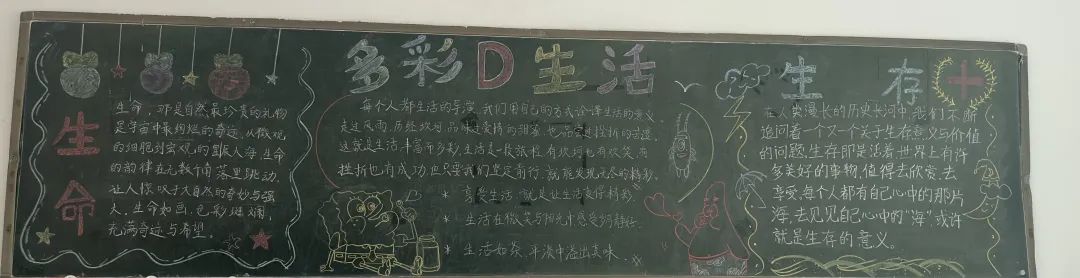 生命
生命，那是自然最珍贵的礼物
是宇宙中最绚烂的奇迹，从微观
的细胞到宏观的星辰人海，生命
的韵律在无数个角落里跳动，
让人惊叹于大自然的奇妙与强
大。生命如画，色彩斑斓，
充满奇迹与希望。
多彩D生活
每个人都生活的导演，我们用自己的方式诠释生活的意义
走过风雨，历经坎坷，品味过爱情的甜蜜，也品过挫折的苦涩
这就是生活，丰富而多彩，生活是一段旅程，有坎坷也有欢笑，有
挫折也有成功，但只要我们坚定前行，就能发现无尽的精彩，
* 享受生活，就是让生活变得精彩
* 生活在微笑与阳光中感受到静好
* 生活如茶，平淡中溢出美味
生存
在人类漫长的历史长河中，我们不断
追问着一个又一个关于生存意义与价值
的问题，生存即是活着，世界上有许
多美好的事物，值得去欣赏，去
享受，每个人都有自己心中的那片
海，去见见自己心中的“海”，或许
就是生存的意义。